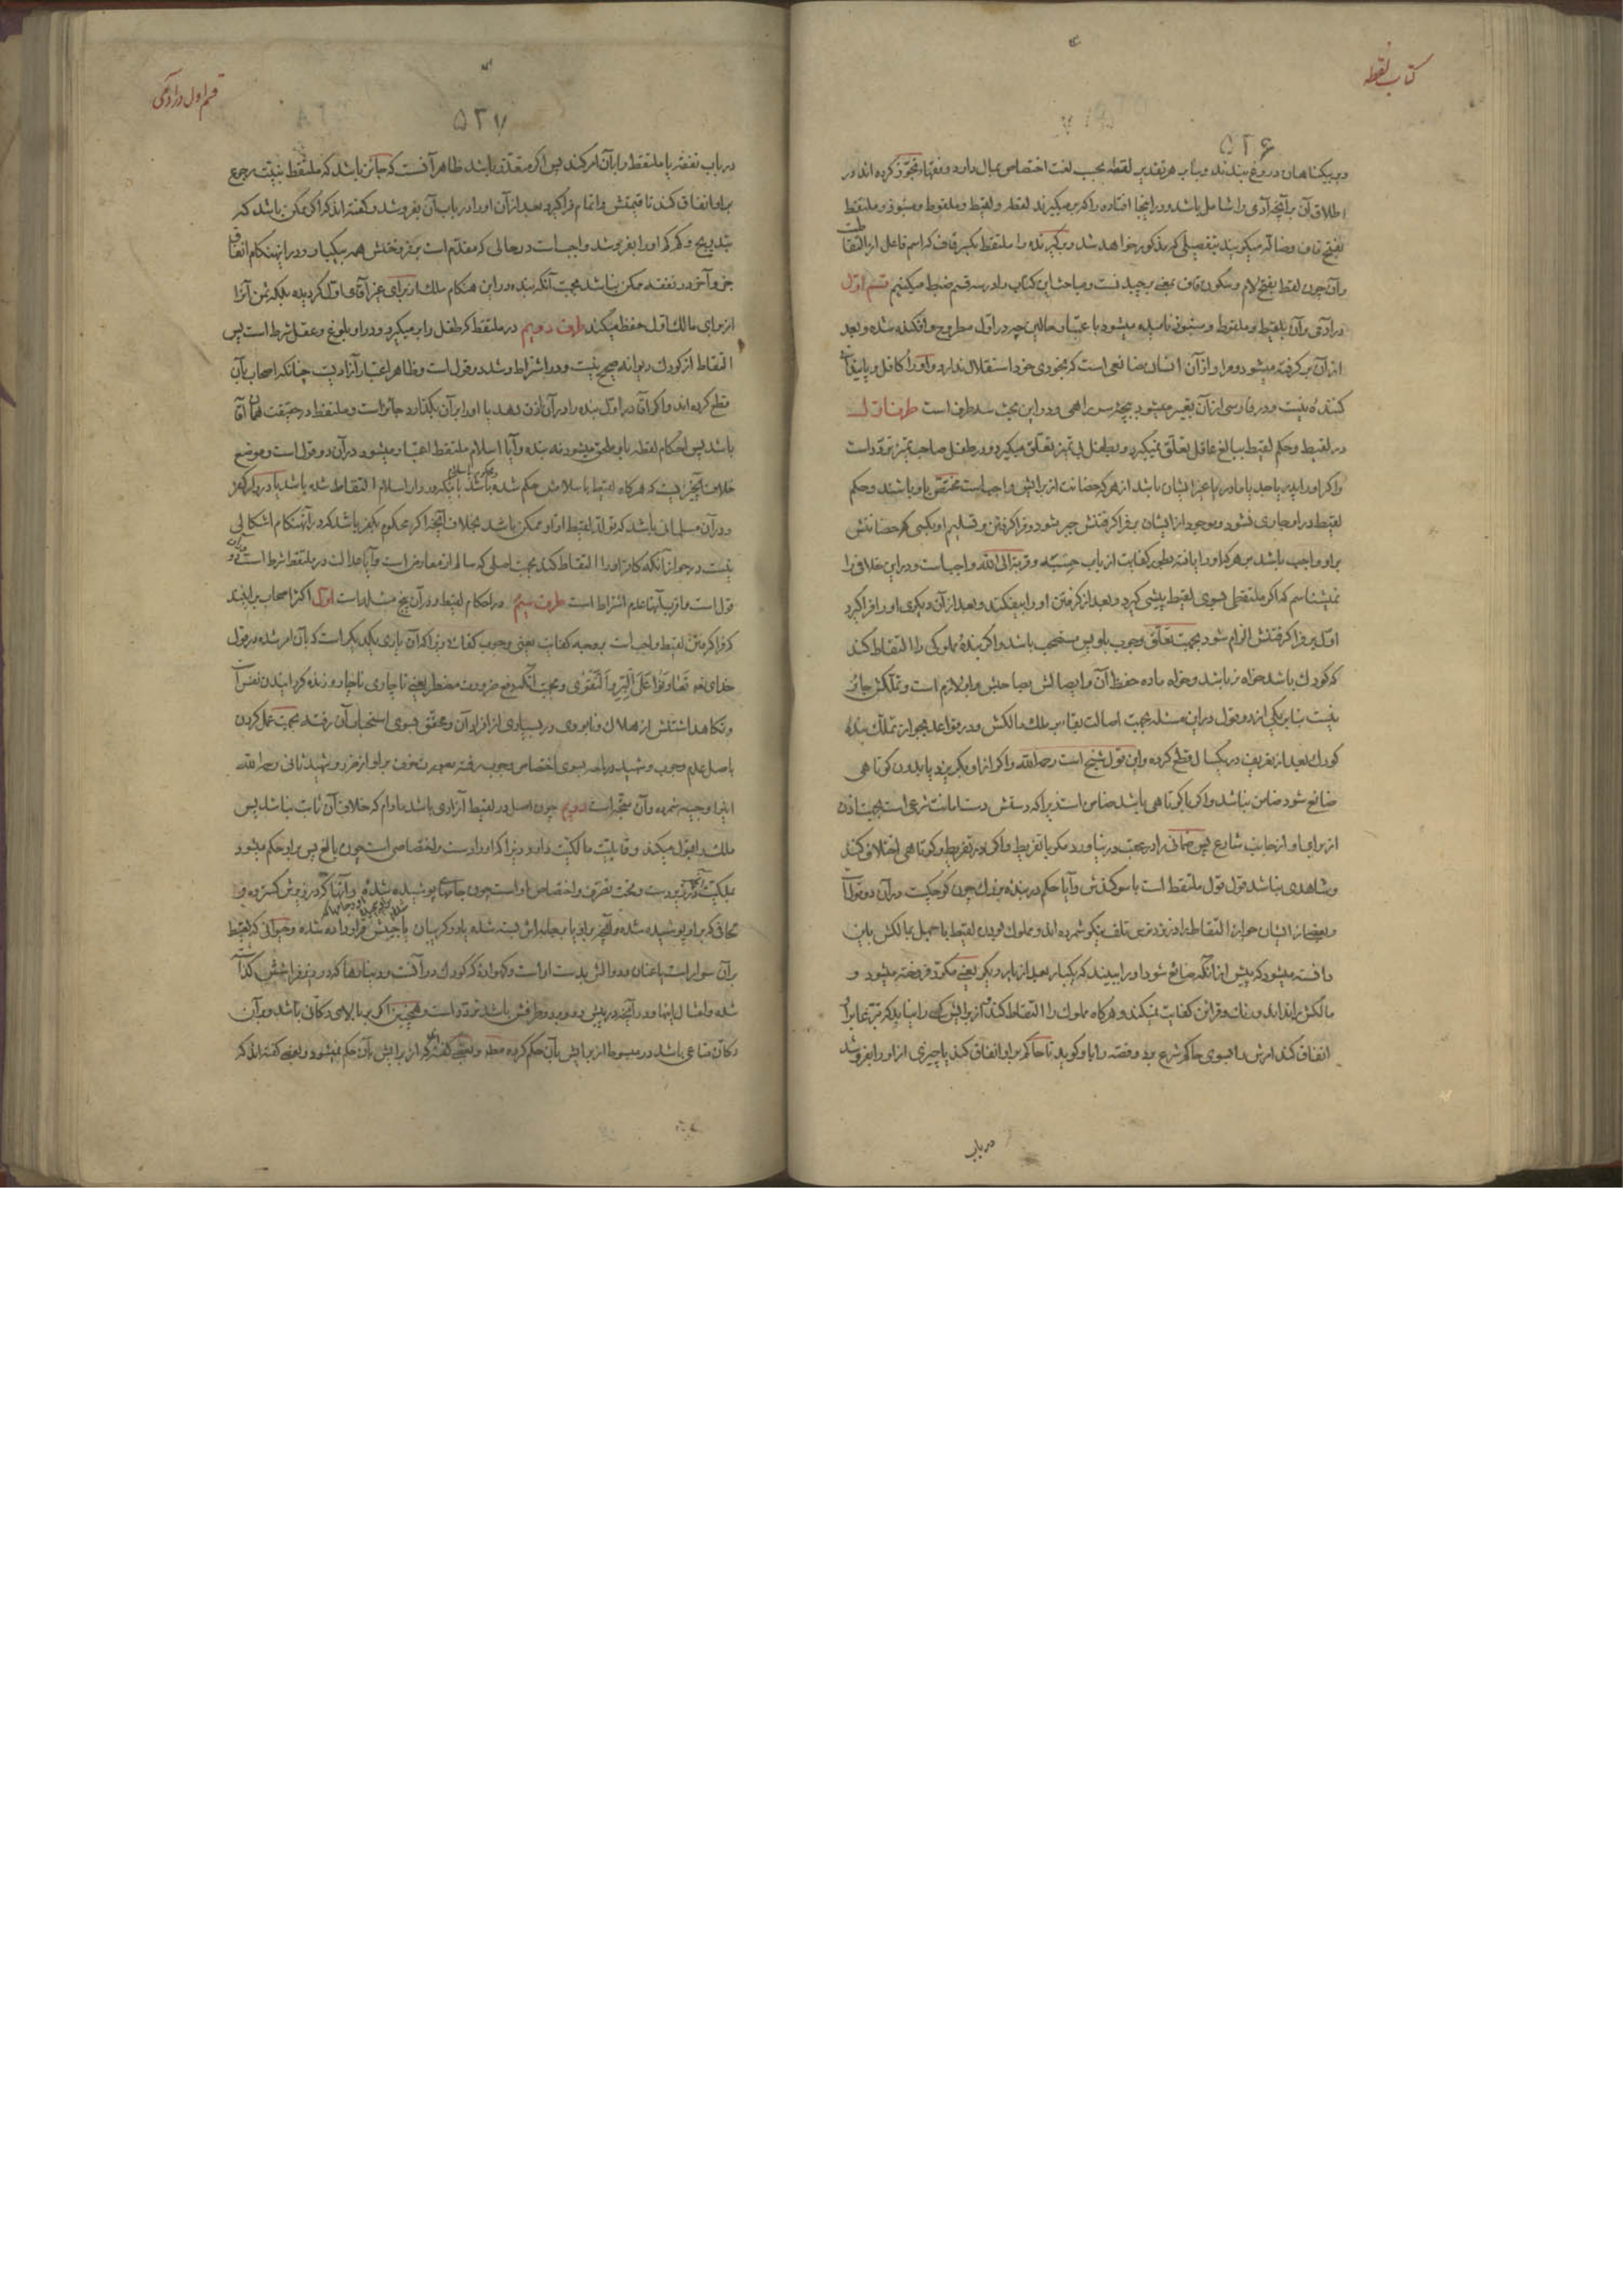 کتاب لقطه
۵۲۶
و بر بیکناهان دروغ بندند و بنابر هر تقدیر لقطه بحسب لغت اختصاص بمال دارد و فقها تجوّز کرده اند در
اطلاق آن بر آنچه آدمی را شامل باشد و در اینجا افتاده را که بر میگیرند لقطه و لقیط و ملقوط و منبوذ و ملتقط
بفتح قاف و ضالّه میگویند بتفصیلی که مذکور خواهد شد و برگیرنده را ملتقط بکسر قاف که اسم فاعل از التقاط
و آن چون لقط بفتح لام و سکون قاف بمعنی برچیدنست و مباحث این کتاب را در سه قسم ضبط میکنیم قسم اوّل
در آدمی و آن بلقیط و ملقوط و منبوذ نامیده میشود باعتبار حالین چه در اول مطروح و افکنده شده و بعد
از آن بر گرفته میشود و مراد از آن انسان ضائعی است که بخودی خود استقلال ندارد و او را کافل و
کننده نیست و در فارسی از آن تعبیر میشود ببچه سر راهی و در این بحث سه طرف است طرف اول
در لقیط و حکم لقیط ببالغ عاقل تعلّق نمیگیرد و بطفل بی تمیز تعلّق میگیرد و در طفل صاحب تمیز تردّد است
و اگر او را پدر یا جد یا مادر یا غیر ایشان باشد از هر که حضانت از برایش واجب است مختص باو باشند و حکم
لقیط در او جاری نشود و موجود از ایشان بر فرا گرفتنش جبر بشود و فرا گرفتن و تسلیم او بکسی که حضانتش
بر او واجب باشد بر هر که او را یافته بطریق کفایت از باب حسبة و قربة الی الله واجب است و در این خلافی را
نمیشناسم که اگر ملتقطی بسوی لقیط پیشی گیرد و بعد از گرفتن او را بیفکند و بعد از آن دیگری او را فرا گیرد
اول بر فرا گرفتنش الزام شود بجهت تعلّق وجوب باو پس مستحب باشد و اگر بندهٔ مملوکی را التقاط کند
که کودک باشد خواه نر باشد و خواه ماده حفظ آن و ایصالش بصاحبش بر او لازم است و تملّکش جائز
نیست بنابر یکی از دو قول در این مسئله بجهت اصالت بقاء بر ملک مالکش و در قواعد بجواز تملّک بندهٔ
کودک بعد از تعریف در یکسال قطع کرده و این قول شیخ است رحمه الله و اگر از او بگریزد یا بدون کوتاهی
ضائع شود ضامن نباشد و اگر با کوتاهی باشد ضامن است زیرا که دستش دست امانت شرعی است بجهت اذن
از برای او از جانب شارع پس ضمانی را در عقب در نیاورد مگر با تفریط و اگر در تفریط و کوتاهی اختلاف کنند
و شاهدی نباشد قول قول ملتقط است با سوگندش و آیا حکم در بندهٔ بزرک چون کوچکست در آن دو قولست
و بعضی از ایشان جواز التقاط را در نزد ترس تلف نیکو شمرده اند و مملوک بودن لقیط با جهل بمالکش باین
دانسته میشود که پیش از آنکه ضائع شود او را ببینند که یکبار بعد از بار دیگر یعنی مکرّر فروخته میشود و
مالکش را ندانند و صفات و قرائن کفایت نمیکند و هرگاه مملوک را التقاط کند و از برایش کسی را نیابد که تبرّعا بر او
انفاق کند امرش را بسوی حاکم شرع برد و قصه را باو گوید تا حاکم بر او انفاق کند یا چیزی از او را بفروشد
در باب
قسم اول در آدمی
۵۲۷
در باب نفقه یا ملتقط را بآن امر کند پس اگر متعذّر باشد ظاهر آنست که جائز باشد که ملتقط بنیّت رجوع
بر او انفاق کند تا قیمتش را تمام فرا گیرد بعد از آن او را در باب آن بفروشد و گفته اند که اگر ممکن باشد که
بتدریج و کم کم او را بفروشد واجب است در حالی که مقدّم است بر فروختنش همه بیکبار و در اینهنگام انفاق
جزو آخر در نفقه ممکن نباشد بجهت آنکه بنده در این هنگام ملک از برای غیر آقای اول گردیده بلکه ثمن آنرا
از برای مالک اول حفظ میکند طرف دویم در ملتقط که طفل را بر میگیرد و در او بلوغ و عقل شرط است پس
التقاط از کودک و دیوانه صحیح نیست و در اشتراط رشد دو قول است و ظاهر اعتبار آزادیست چنانکه اصحاب بآن
قطع کرده اند و اگر آقا در اول بنده را در آن اذن دهد یا او را بر آن بگذارد جائز است و ملتقط در حقیقت همان آقا
باشد پس احکام لقطه باو ملحق میشود نه بنده و آیا اسلام ملتقط اعتبار میشود در آن دو قول است و موضع
خلاف آنچیزیست که هرگاه لقیط باسلامش حکم شده باشد باینکه در دار اسلام التقاط شده باشد یا در دار کفر
و در آن مسلمانی باشد که تولّد لقیط از او ممکن باشد بخلاف آنچه اگر محکوم بکفر باشد که در آنهنگام اشکالی
نیست در جواز آنکه کافر او را التقاط کند بجهت اصلی که سالم از معارض است و آیا عدالت در ملتقط شرط است در آن دو
قول است و اقرب آنها عدم اشتراط است طرف سیّم در احکام لقیط و در آن پنج مسئله است اول اکثر اصحاب بر اینند
که فرا گرفتن لقیط واجب است بوجه کفایت یعنی وجوب کفائی زیرا که آن یاری یکدیگر است که بآن امر شده در قول
خدای تعالی تَعَاوَنُوا عَلَى الْبِرِّ وَالتَّقْوَى و بجهت آنکه دفع ضرورت مضطر یعنی ناچاری ناچار و زنده گردانیدن نفس است
و نگاهداشتنش از هلاک و نابودی در بسیاری از افراد آن و محقق بسوی استحباب آن رفته بجهت عمل کردن
باصل عدم وجوب و شهید در لمعه بسوی اختصاص وجوب رفته بصورت خوف بر او از ضرر و شهید ثانی رحمه الله
اینرا وجیه شمرده و آن متّجه است دویم چون اصل در لقیط آزادی باشد مادام که خلاف آن ثابت نباشد پس
ملک را قبول میکند و قابلیّت مالکیّت دارد و زیرا که او را دست و اختصاصی است چون بالغ پس بر او حکم میشود
بملکیّت آنچه در زیر دست و تحت تصرّف و اختصاص او است چون جامهای پوشیده شده و آنها که در زیرش گسترده و
لحافی که بر او پوشیده شده و آنچه بر او یا بجامه اش بسته شده یا در گریبان یا جیبش قرار داده شده و حیوانی که لقیط
بر آن سوار است یا عنان و دوالش بدست او است و گاهواره که کودک در آنست و دینارها که در زیر فراشش گذاشته
شده و امثال اینها و در آنچه در پیش رو و در دو طرفش باشد تردّد است و همچنین اگر بر بالای دکّانی باشد و بر آن
دکّان متاعی باشد در مبسوط از برایش بآن حکم کرده و بعضی گفته که از برایش بآن حکم نمیشود و بعضی گفته اند که